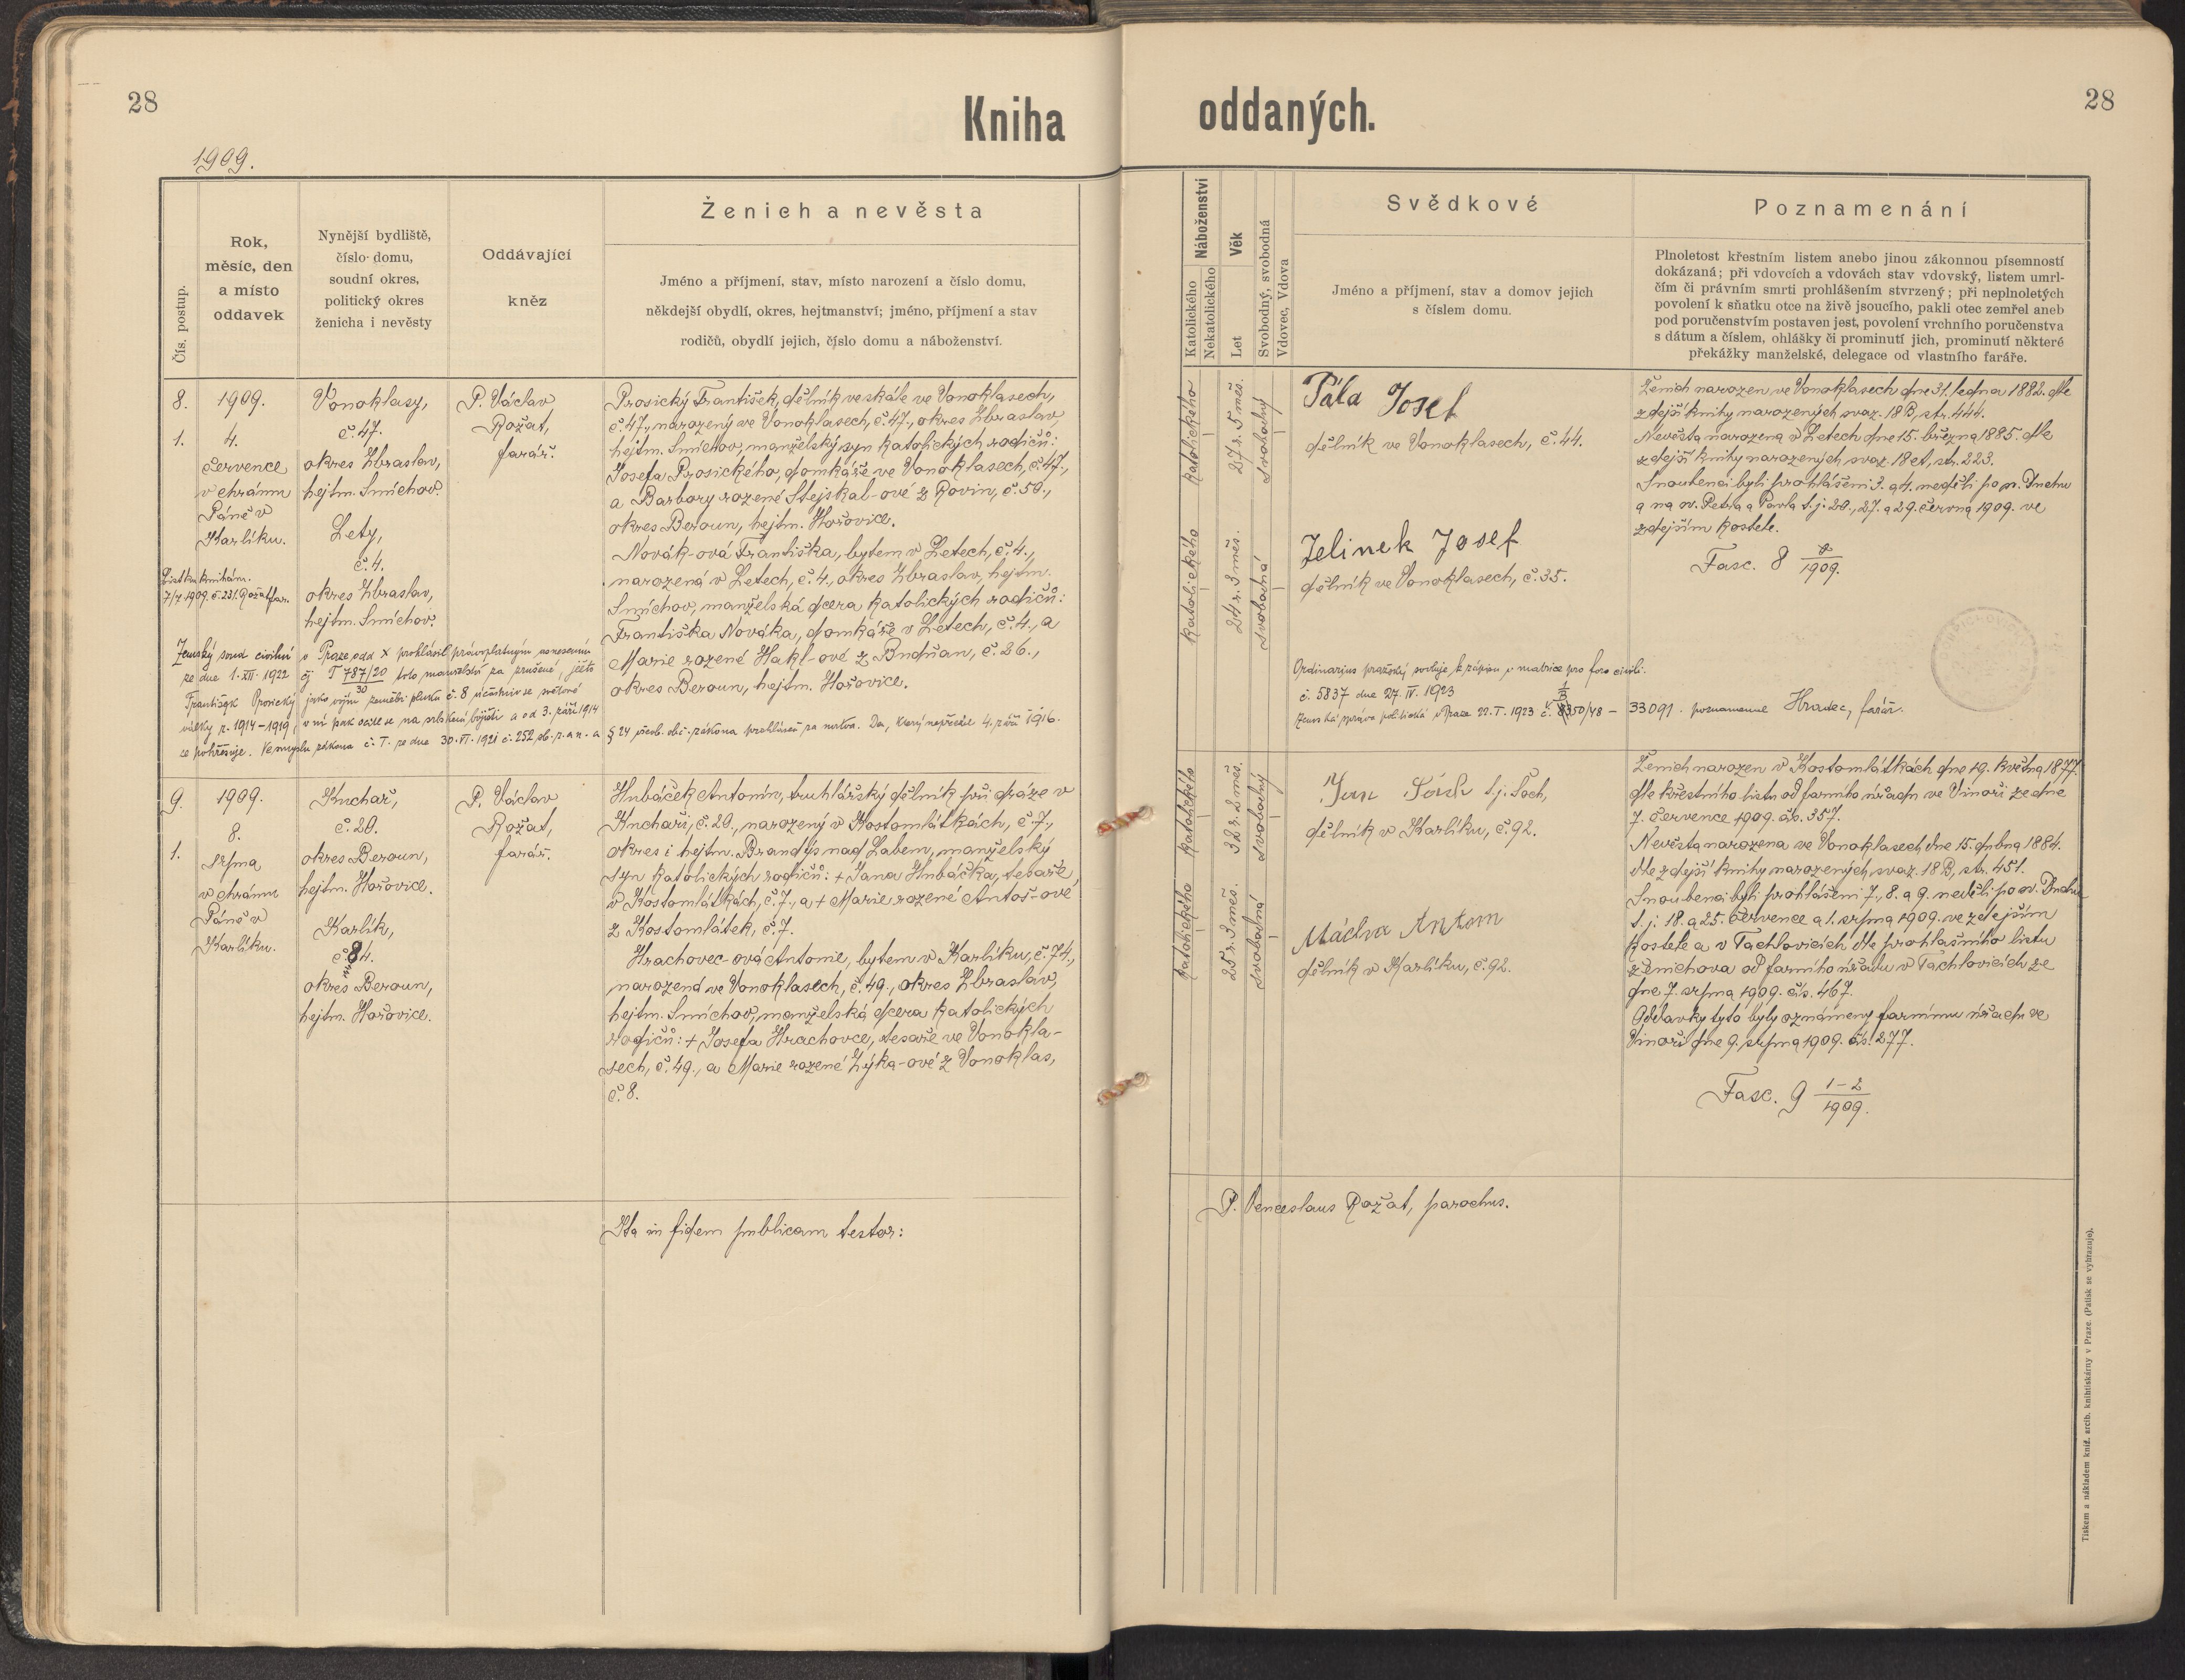 28
Kniha
oddaných.
28
1909.
Čís. postup.
Rok,
měsíc, den
a místo
oddavek
Nynější bydliště,
číslo domu,
soudní okres,
politický okres
ženicha i nevěsty
Oddávající
kněz
Ženich a nevěsta
Jméno a příjmení, stav, místo narození a číslo domu,
někdejší obydlí, okres, hejtmanství; jméno, příjmení a stav
rodičů, obydlí jejich, číslo domu a náboženství.
Náboženství
Katolického
Nekatolického
Věk
Let
Svobodný, svobodná
Vdovec, Vdova
Svědkové
Jméno a příjmení, stav a domov jejich
s číslem domu.
Poznamenání
Plnoletost křestním listem anebo jinou zákonnou písemností
dokázaná; při vdovcích a vdovách stav vdovský, listem umrl-
čím či právním smrti prohlášením stvrzený; při neplnoletých
povolení k sňatku otce na živě jsoucího, pakli otec zemřel aneb
pod poručenstvím postaven jest, povolení vrchního poručenstva
s dátum a číslem, ohlášky či prominutí jich, prominutí některé
překážky manželské, delegace od vlastního faráře.
8.
1.
1909.
4.
července
v chrámu
Páně v
Karlíku.
List knihám.
7/7 1909. č. 231. Rožat far.
Vonoklasy,
č. 47.
okres Zbraslav,
hejtm. Smíchov.
Lety,
č. 4.
okres Zbraslav,
hejtm. Smíchov.
P. Václav
Rožat,
farář.
Prosický František, dělník ve skále ve Vonoklasech,
č. 47., narozený ve Vonoklasech, č. 47., okres Zbraslav,
hejtm. Smíchov, manželský syn katolických rodičů:
Josefa Prosického, domkáře ve Vonoklasech, č. 47.,
a Barbory rozené Stejskal-ové z Rovin, č. 50.,
okres Beroun, hejtm. Hořovice.
Novák-ová Františka, bytem v Letech, č. 4.,
narozená v Letech, č. 4., okres Zbraslav, hejtm.
Smíchov, manželská dcera katolických rodičů:
Františka Nováka, domkáře v Letech, č. 4., a
Marie rozené Hakl-ové z Budňan, č. 26.,
okres Beroun, hejtm. Hořovice.
Zemský soud civilní v Praze odd X prohlásil právoplatným usnesením
ze dne 1. XII. 1922 čj T 787/20 toto manželství za zrušené, ježto
30
František Prosický jako vojín pěšího pluku č. 8 účastniv se světové
války r. 1914–1919, v ní pak ocitl se na srbském bojišti a od 3. září 1914
se pohřešuje. Ve smyslu zákona č. T. ze dne 30. VI. 1921 č. 252 sb. z. a n. a § 24 všeob. obč. zákona prohlášen za mrtva. Den, který nepřežil 4. září 1916.
Katolického
27 r. 5 měs.
Svobodný
Katolického
24 r. 3 měs.
Svobodná
Pála Josef
dělník ve Vonoklasech, č. 44.
Jelinek Josef
dělník ve Vonoklasech, č. 35.
Ženich narozen ve Vonoklasech dne 31. ledna 1882. dle
zdejší knihy narozených svaz. 18 B, str. 444.
Nevěsta narozena v Letech dne 15. března 1885. dle
zdejší knihy narozených svaz. 18 A, str. 223.
Snoubenci byli prohlášeni 3. a 4. neděli po sv. Duchu
a na sv. Petra a Pavla t. j. 20., 27. a 29. června 1909. ve
zdejším kostele.
Fasc. 8
1909.
Ordinarius pražský svoluje k zápisu v matrice pro foro civili.
č. 5837 dne 27. IV. 1923
Zemská správa politická v Praze 22. I. 1923 č. 8350/48 – 33091. poznamenal Hradec, farář.
9.
1.
1909.
8.
srpna
v chrámu
Páně v
Karlíku.
Kuchař,
č. 20.
okres Beroun,
hejtm. Hořovice.
Karlík,
č. 84.
okres Beroun,
hejtm. Hořovice.
P. Václav
Rožat,
farář.
Hubáček Antonín, truhlářský dělník při dráze v
Kuchaři, č. 20., narozený v Kostomlátkách, č. 7.,
okres i hejtm. Brandýs nad Labem, manželský
syn katolických rodičů: + Jana Hubáčka, tesaře
v Kostomlátkách, č. 7., a + Marie rozené Antoš-ové
z Kostomlátek, č. 7.
Hrachovec-ová Antonie, bytem v Karlíku, č. 74.,
narozená ve Vonoklasech, č. 49., okres Zbraslav,
hejtm. Smíchov, manželská dcera katolických
rodičů: + Josefa Hrachovce, tesaře ve Vonokla-
sech, č. 49., a Marie rozené Zýka-ové z Vonoklas,
č. 8.
Katolického
32 r. 2 měs.
Svobodný
Katolického
25 r. 3 měs.
Svobodná
Jan t. j. Šoch,
dělník v Karlíku, č. 92.
Mácha Anton
dělník v Karlíku, č. 92.
Ženich narozen v Kostomlátkách dne 19. května 1877.
dle křestního listu od farního úřadu ve Vinoři ze dne
7. července 1909. čís. 357.
Nevěsta narozena ve Vonoklasech dne 15. dubna 1884.
dle zdejší knihy narozených svaz. 18 B, str. 451.
Snoubenci byli prohlášeni 7., 8. a 9. neděli po sv. Duchu
t. j. 18. a 25. července a 1. srpna 1909. ve zdejším
kostele a v Tachlovicích dle prohlašního listu
ženichova od farního úřadu v Tachlovicích ze
dne 7. srpna 1909. čís. 467.
Oddavky tyto byly oznámeny farnímu úřadu ve
Vinoři dne 9. srpna 1909. čís. 277.
Fasc. 9 1–2
1909.
Ita in fidem publicam testor:
P. Venceslaus Rožat, parochus.
Tiskem a nákladem kníž. arcib. knihtiskárny v Praze. (Patisk se vyhrazuje).